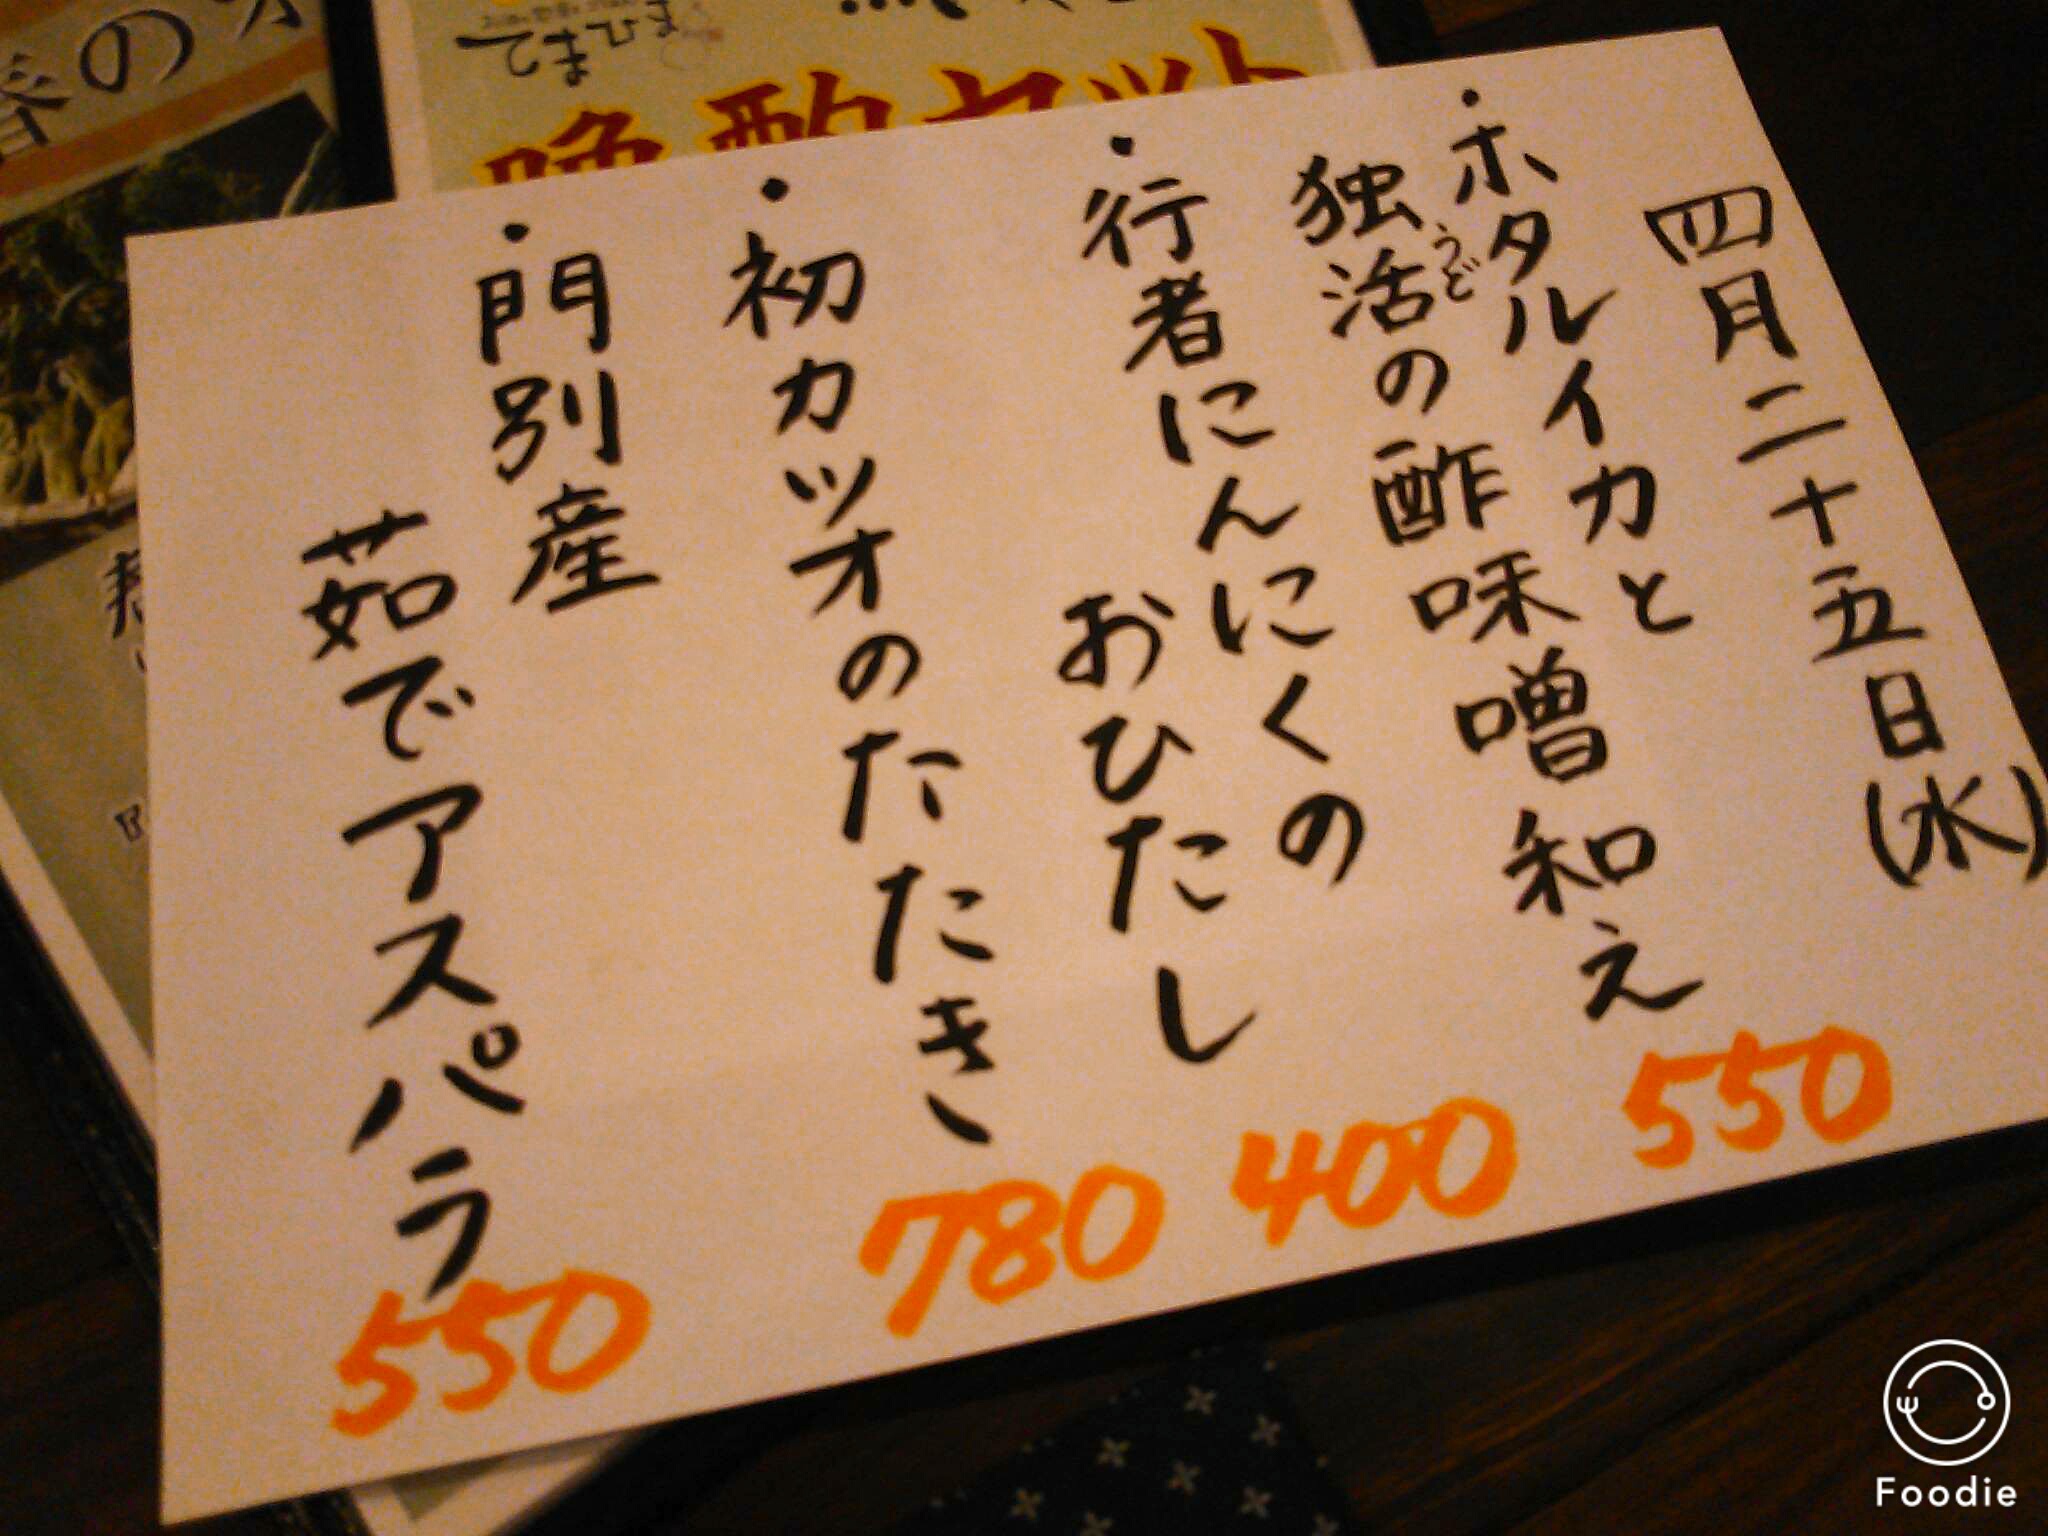 四月二十五日(水)
・ホタルイカと
独活の酢味噌和え
うど
550
・行者にんにくの
おひたし
400
・初カツオのたたき
780
・門別産
茹でアスパラ
550
晩酌セット
春の
Foodie